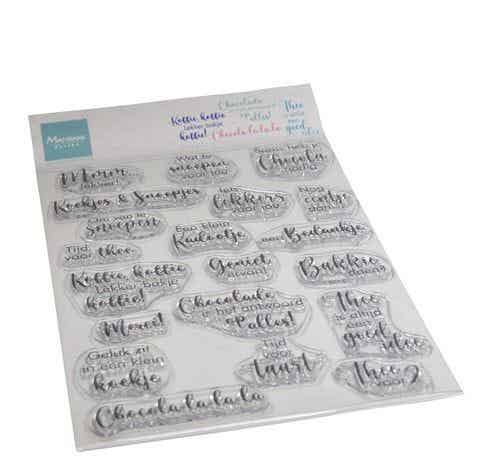 Marianne
Design
Koffie, koffie
Lekker bakje
koffie!
Chocolade
op alles!
Chocola-la-la-la
Thee
good
idee
Mmm...
lekker!
Wat te
snoepen
voor jou
Soms heb je
Chocola
nodig
Koekjes & Snoepjes
Iets
lekkers
voor jou
Nog
eentje
dan!
Om van te
Snoepen
Een klein
Kadootje
een Bedankje
Tijd
voor thee
Koffie, koffie
Lekker bakje
koffie!
Geniet
ervan!
Bakkie
doen?
Merci!
Chocolade
is het antwoord
op alles!
Thee
is altijd
een
goed
idee
Geluk zit
in een klein
koekje
Tijd
voor
taart
Thee
voor 2
Chocola-la-la-la